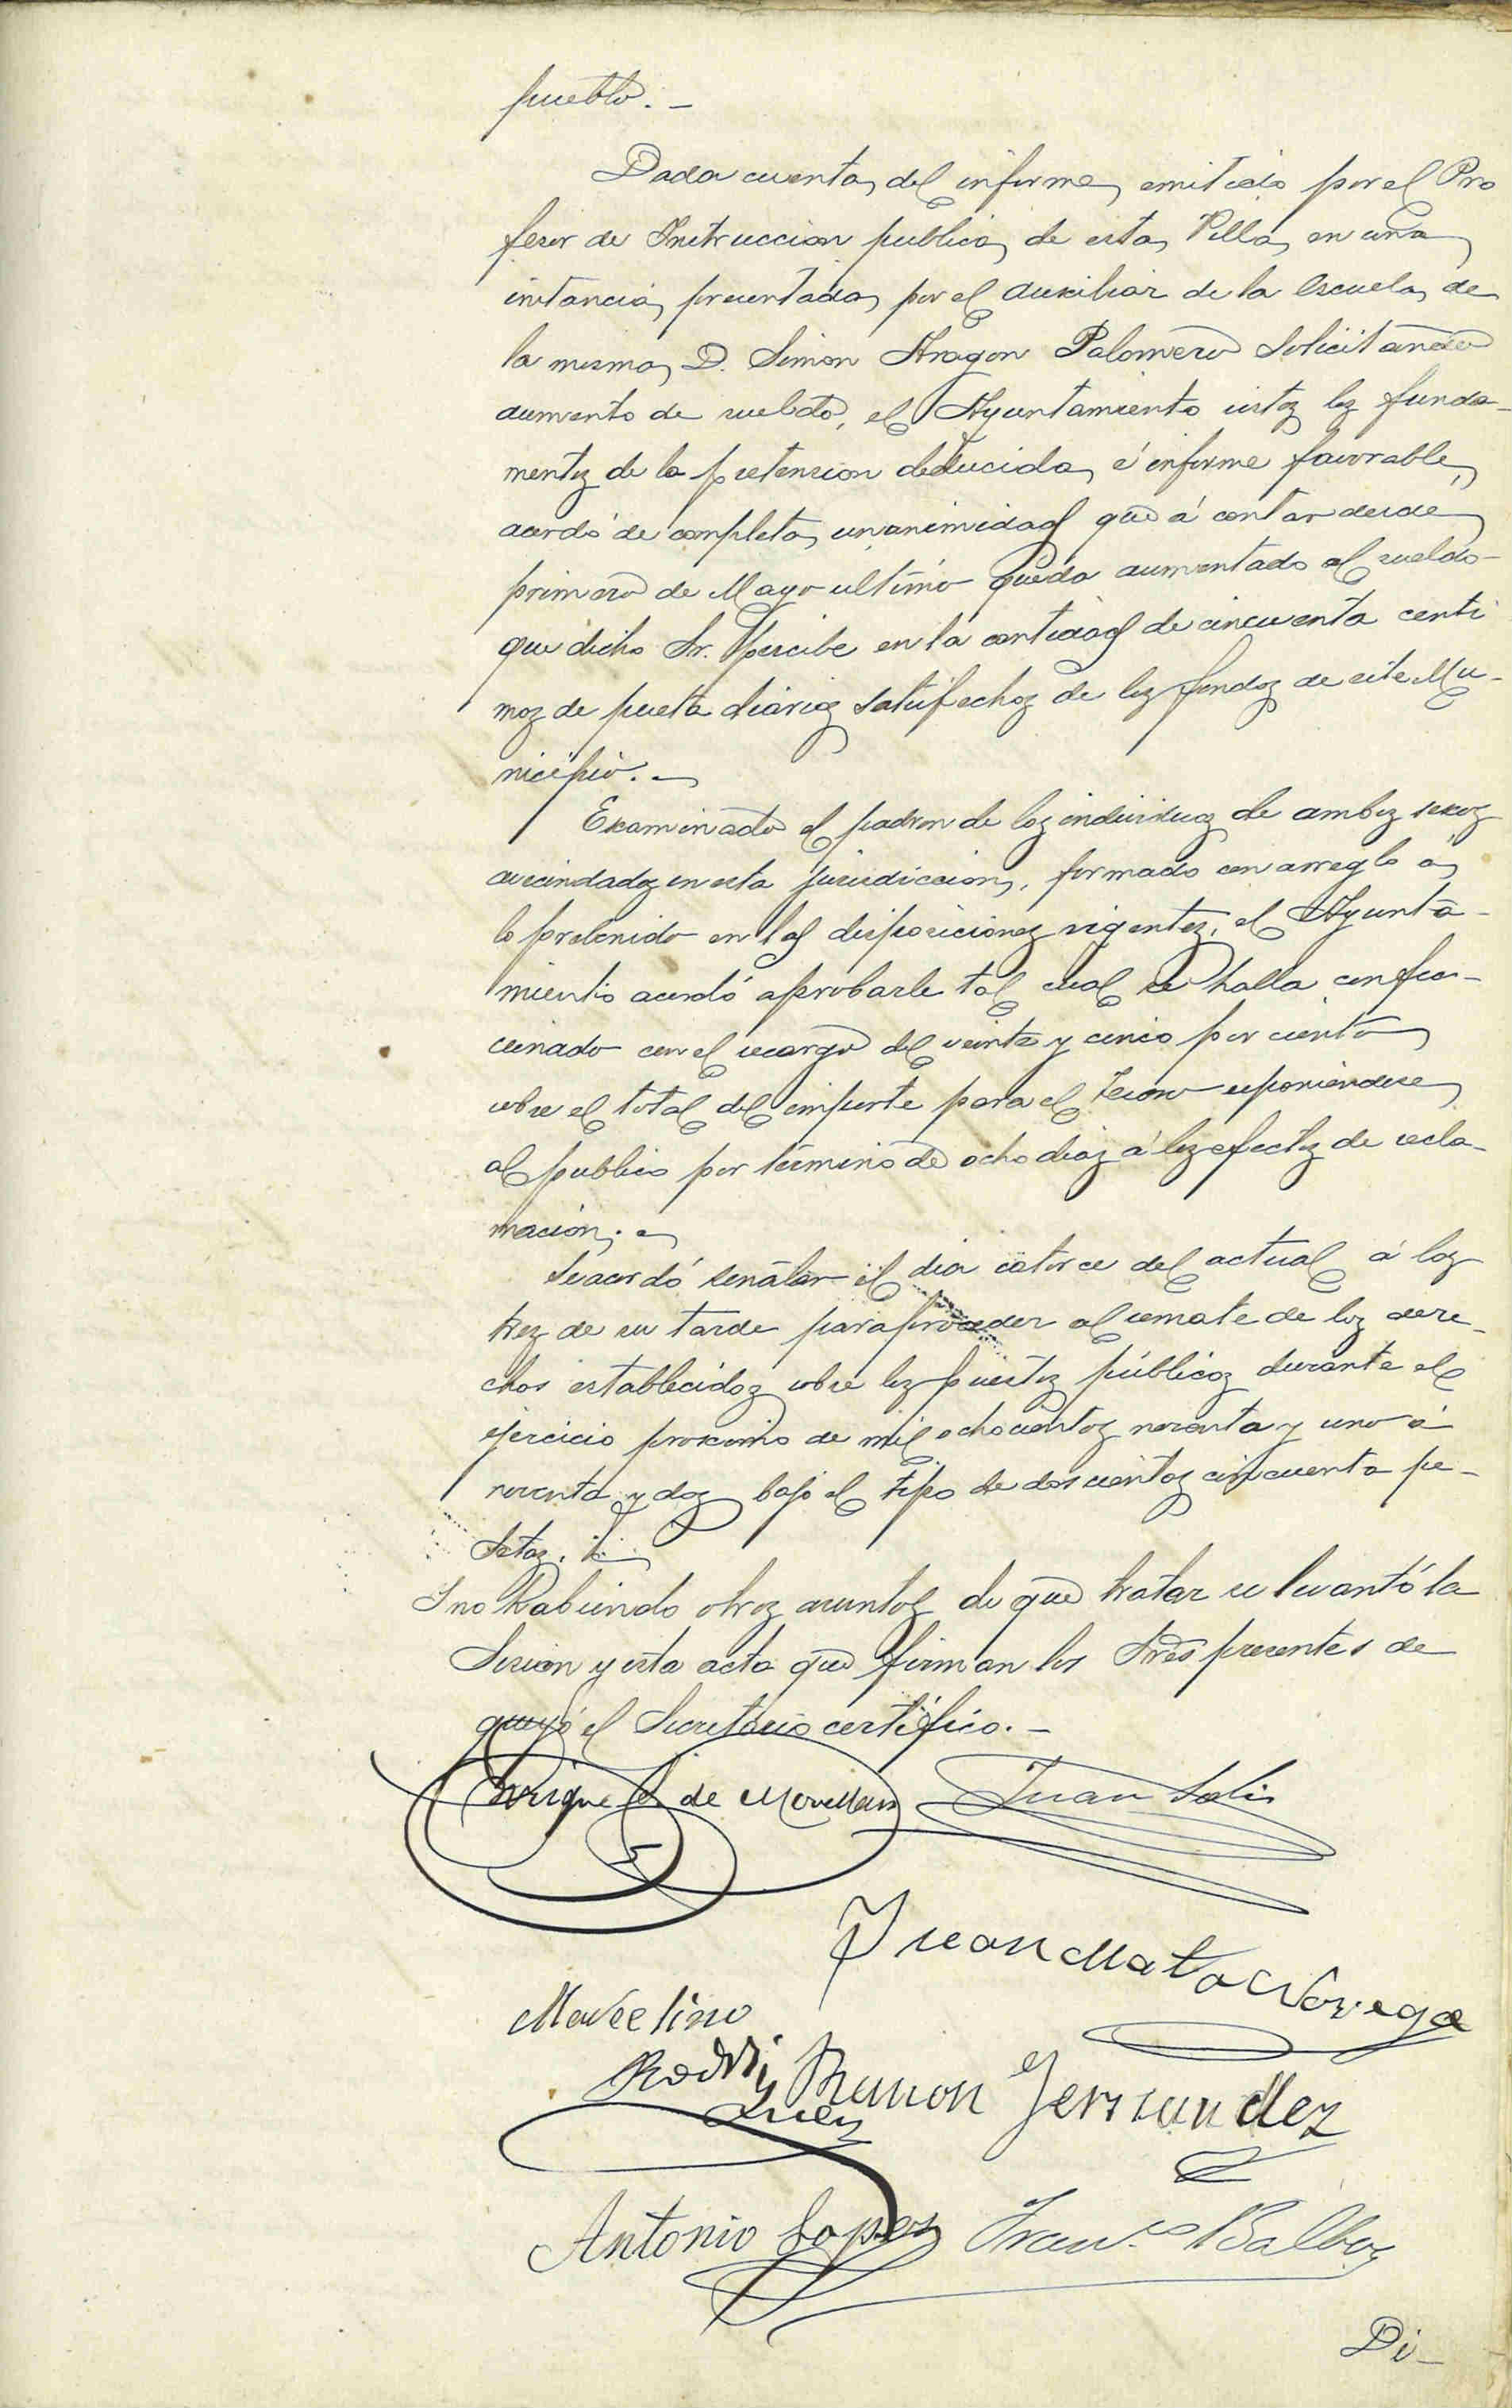 pueblo. –
Dada cuenta del informe emitido por el Pro
fesor de Instruccion publica de esta Villa en una
instancia presentada por el Auxiliar de la Escuela de
la misma D. Simon Aragon Palomero solicitando
aumento de sueldo, el Ayuntamiento vistos los funda-
mentos de la pretension deducida é informe favorable,
acordó de completa unanimidad que á contar desde
primero de Mayo ultimo queda aumentado el sueldo
que dicho Sr. percibe en la cantidad de cincuenta centi
mos de peseta diarios satisfechos de los fondos de este Mu-
nicipio. –
Examinado el padron de los individuos de ambos sexos
avecindados en esta jurisdiccion, formado con arreglo á
lo prevenido en las disposiciones vigentes, el Ayunta-
miento acordó aprobarle tal cual se halla confec-
cionado con el recargo del veinte y cinco por ciento
sobre el total del importe para el Tesoro exponiendose
al publico por término de ocho dias á los efectos de recla-
macion. –
Se acordó señalar el dia catorce del actual á las
tres de su tarde para proceder al remate de los dere-
chos establecidos sobre los puestos públicos durante el
ejercicio proximo de mil ochocientos noventa y uno á
noventa y dos bajo el tipo de doscientas cincuenta pe-
setas. –
Y no habiendo otros asuntos de que tratar se levantó la
Sesion y esta acta que firman los Sres presentes de
que yó el Secretario certifico. –
Enrique G. de Movellan Juan Solis
Juan Mata Noriega
Marcelino
Rodri
guez Ramon Fernandez
Antonio Lopez Franco Balbas
Di-